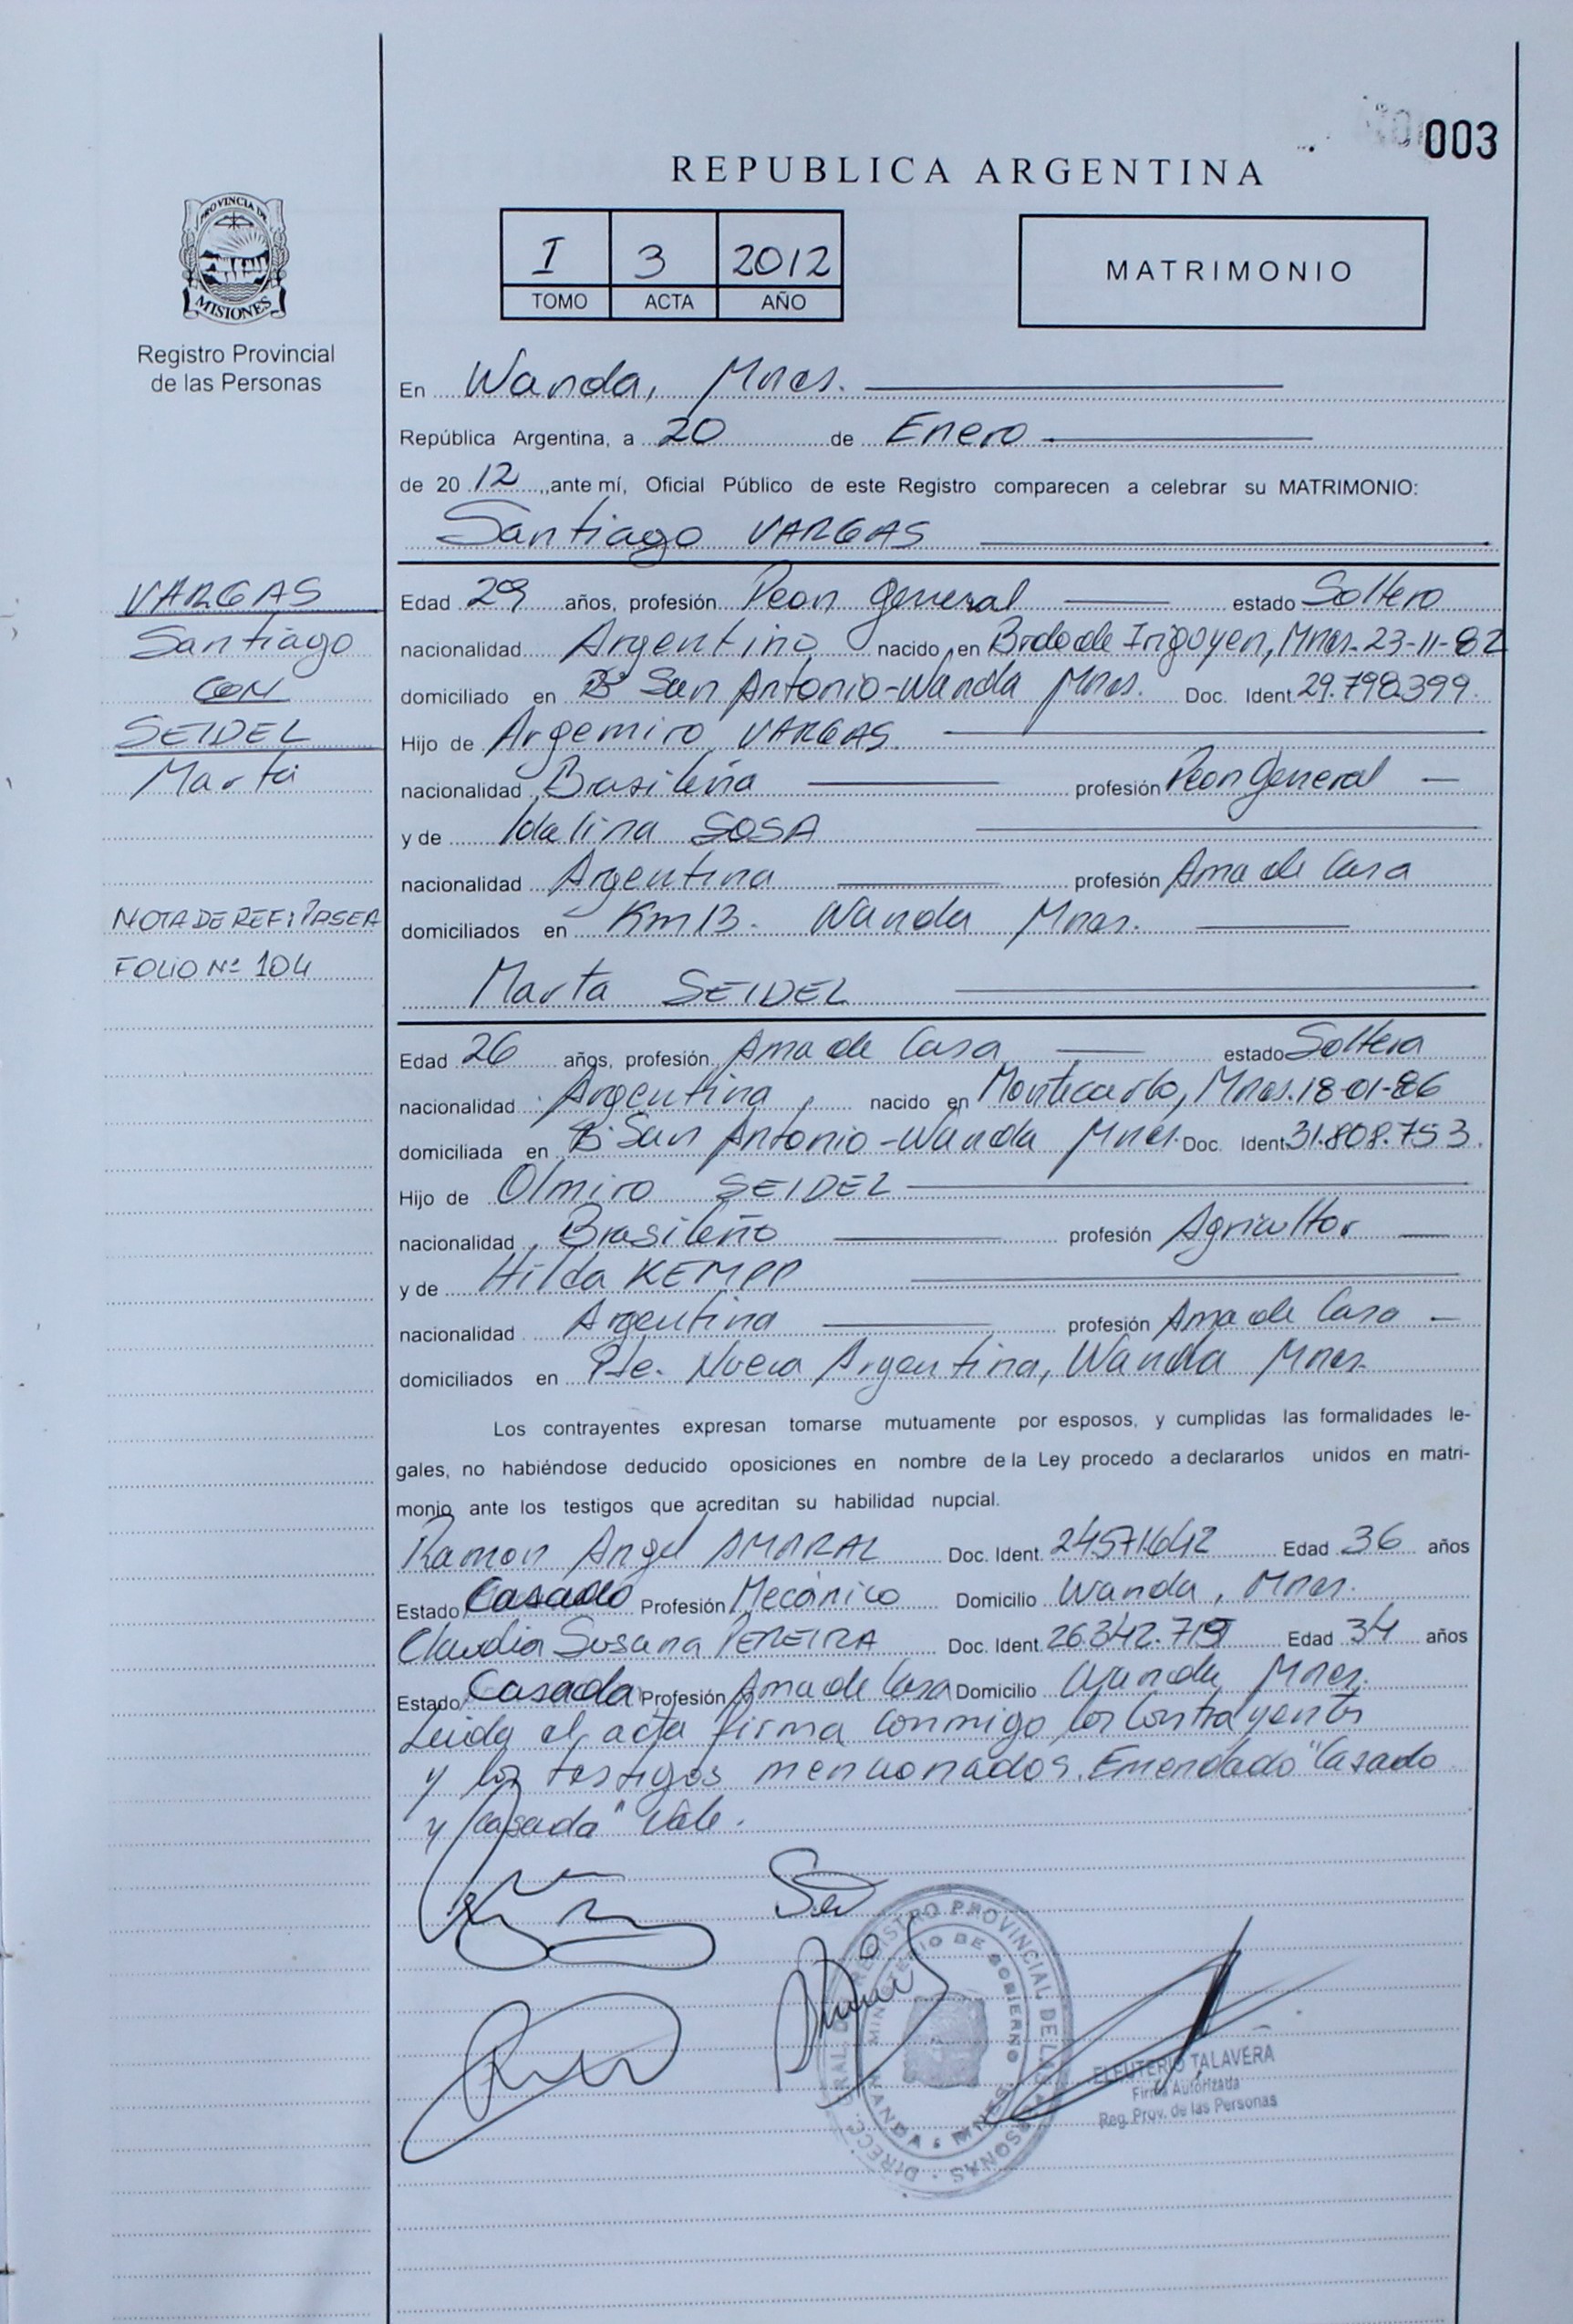 003
REPUBLICA ARGENTINA
PROVINCIA DE
MISIONES
Registro Provincial
de las Personas
I 3 2012
TOMO ACTA AÑO
MATRIMONIO
En Wanda, Mnes.
República Argentina, a 20 de Enero
de 20 12, ante mí, Oficial Público de este Registro comparecen a celebrar su MATRIMONIO:
Santiago VARGAS
VARGAS
Santiago
CON
SEIDEL
Marta
NOTA DE REF: PASE A
FOLIO Nº 104
Edad 29 años, profesión Peon General estado Soltero
nacionalidad Argentino nacido en Brdo de Irigoyen, Mnes. 23-11-82
domiciliado en Bº San Antonio - Wanda Mnes. Doc. Ident. 29.798.399.
Hijo de Argemiro VARGAS
nacionalidad Brasileña profesión Peon General
y de Idalina SOSA
nacionalidad Argentina profesión Ama de Casa
domiciliados en Km 13. Wanda Mnes.
Marta SEIDEL
Edad 26 años, profesión Ama de Casa estado Soltera
nacionalidad Argentina, nacido en Montecarlo, Mnes. 18-01-86
domiciliada en Bº San Antonio - Wanda Mnes. Doc. Ident. 31.808.753.
Hijo de Olmiro SEIDEL
nacionalidad Brasileño profesión Agricultor
y de Hilda KEMPP
nacionalidad Argentina profesión Ama de Casa
domiciliados en Pte. Nueva Argentina, Wanda Mnes.
Los contrayentes expresan tomarse mutuamente por esposos, y cumplidas las formalidades le-
gales, no habiéndose deducido oposiciones en nombre de la Ley procedo a declararlos unidos en matri-
monio ante los testigos que acreditan su habilidad nupcial.
Ramon Angel AMARAL Doc. Ident. 24571642 Edad 36 años
Estado Casado Profesión Mecánico Domicilio Wanda, Mnes.
Claudia Susana PEREIRA Doc. Ident. 26.342.719 Edad 34 años
Estado Casada Profesión Ama de Casa Domicilio Wanda, Mnes.
Leida el acta firma conmigo los contrayentes
y los testigos mencionados. Enmendado "Casado
y Casada" Vale.
DIRECC. GRAL. DE REGISTRO PROVINCIAL DE LAS PERSONAS
MINISTERIO DE GOBIERNO
WANDA - MNES.
ELEUTERIO TALAVERA
Firma Autorizada
Reg. Prov. de las Personas